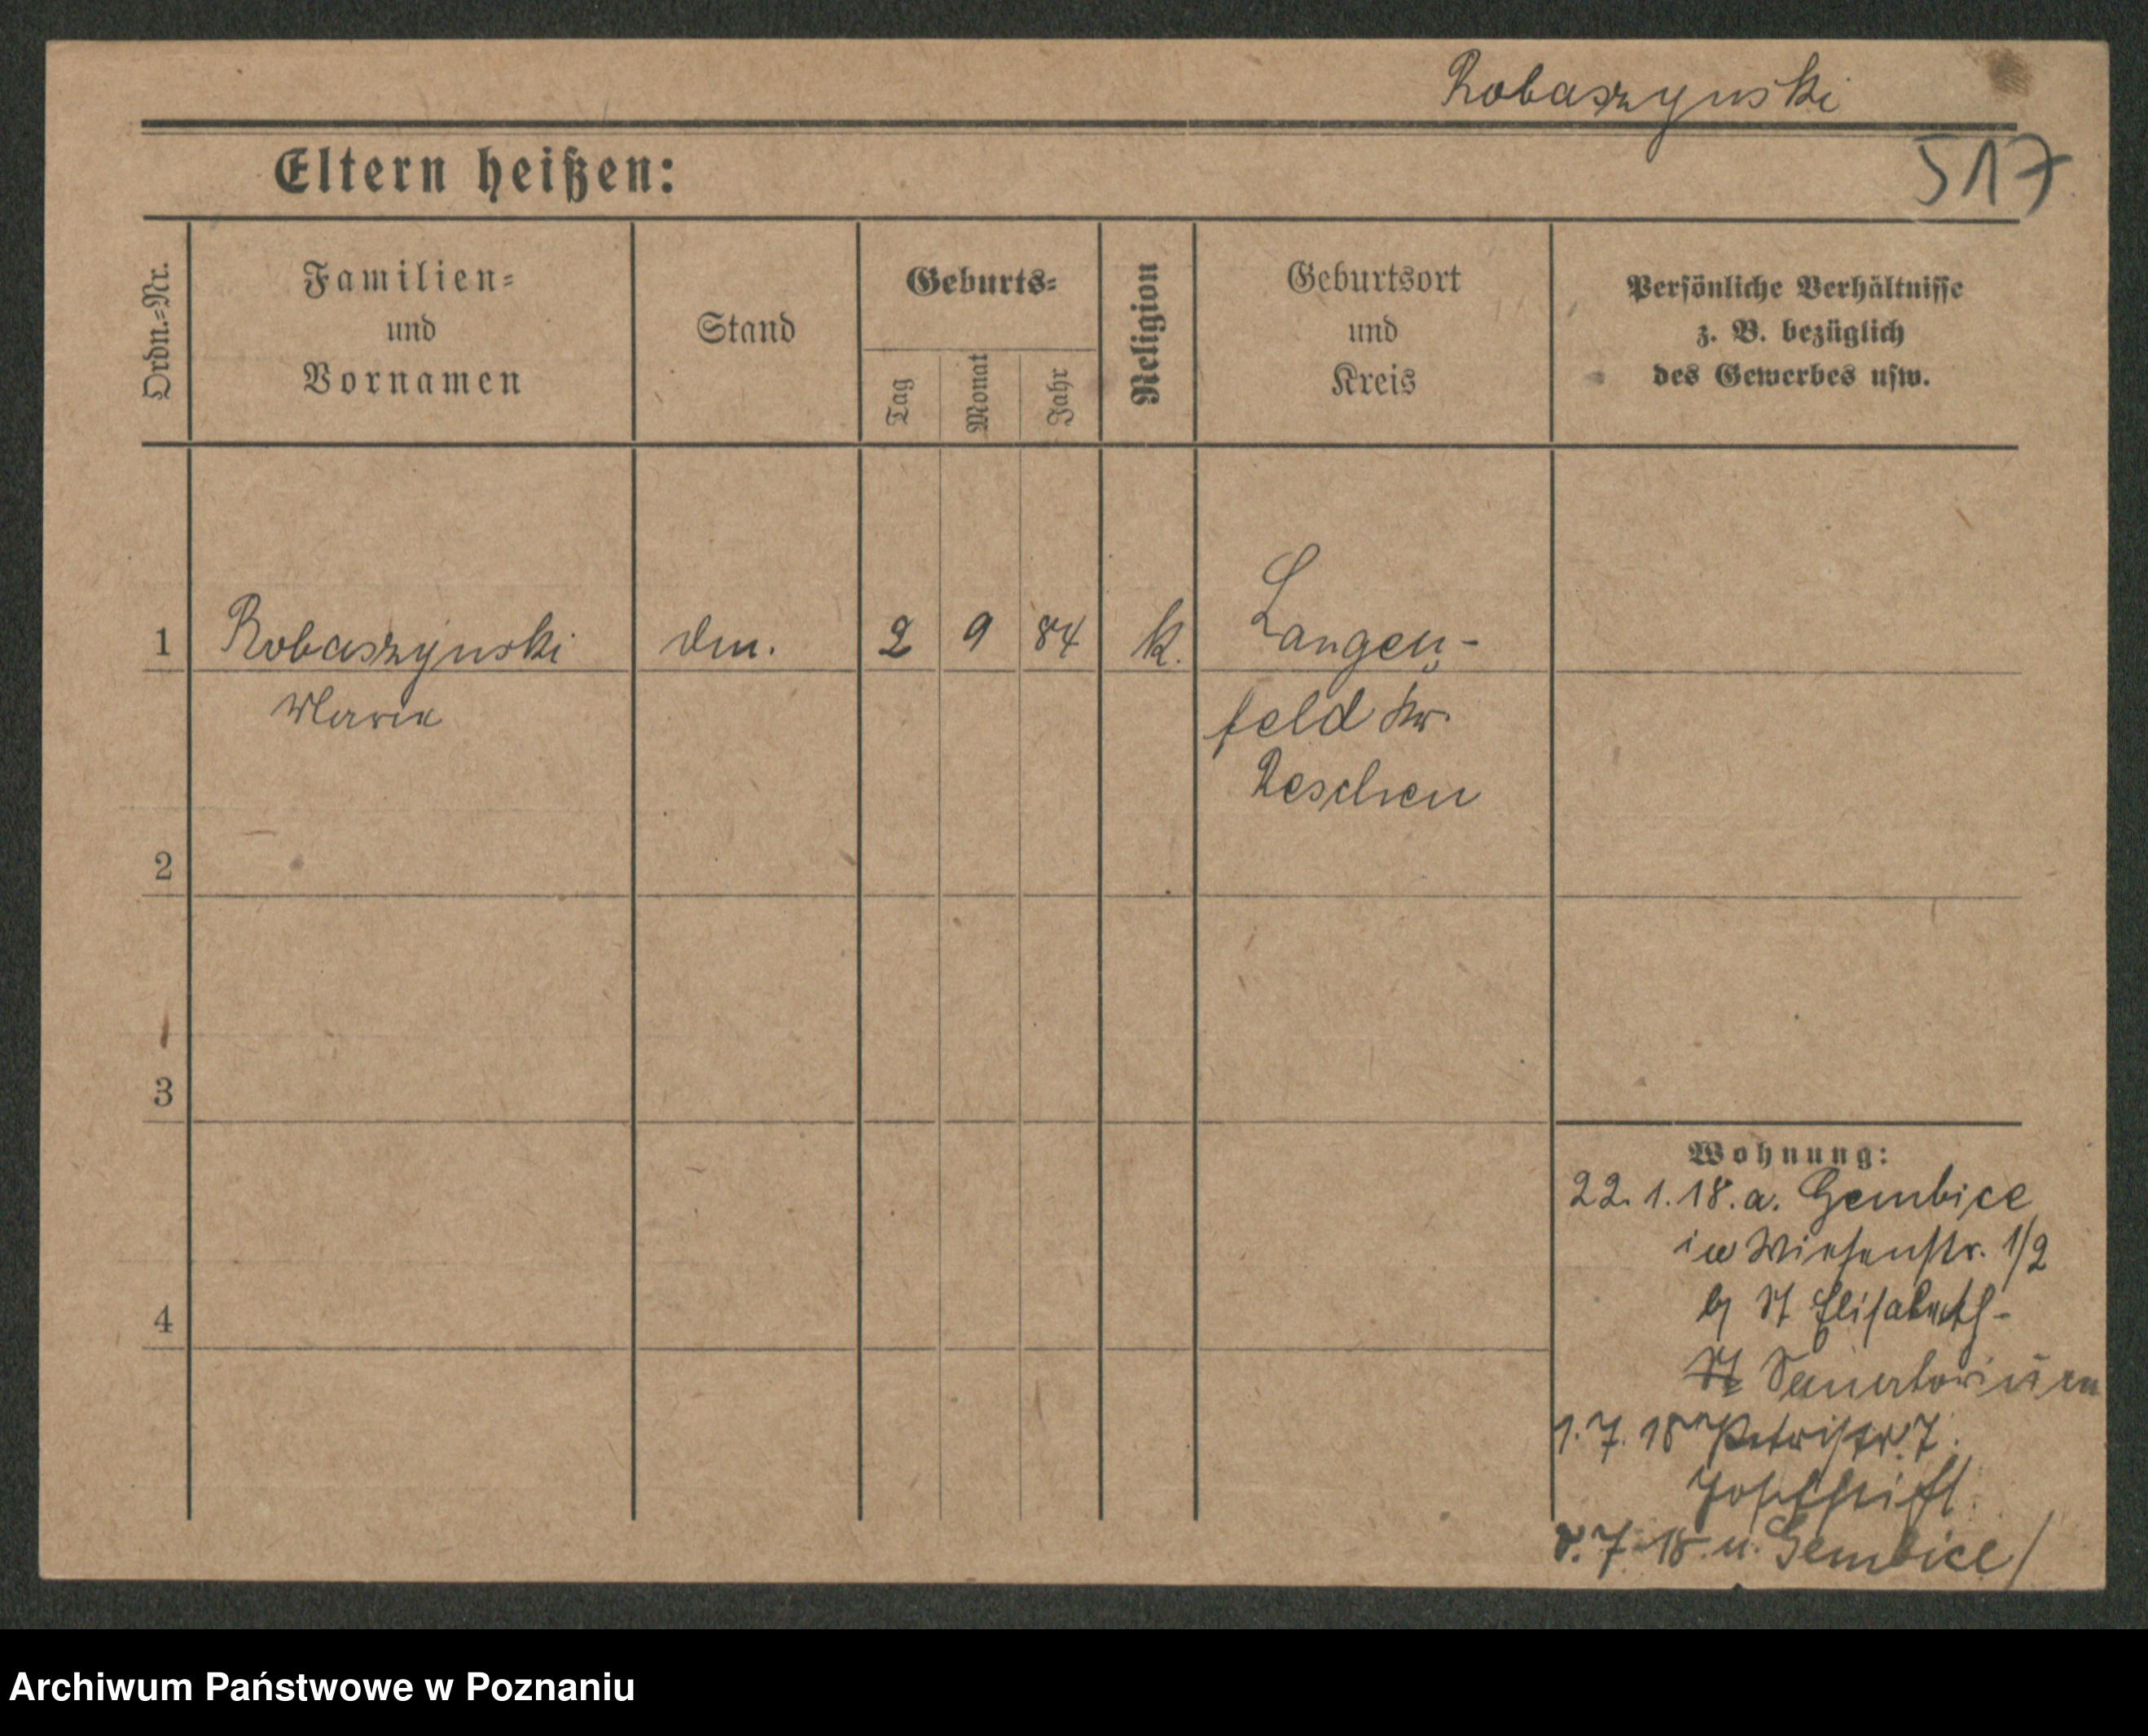 Robaszynski
517
Eltern heißen:
Ordn.=Nr.
Familien=
und
Vornamen
Stand
Geburts=
Tag
Monat
Jahr
Religion
Geburtsort
und
Kreis
Persönliche Verhältnisse
z. B. bezüglich
des Gewerbes usw.
1 Robaszynski 2 9 84 k. Langen-
Maria feld Kr.
Jeschen
2
3
4
Wohnung:
22. 1. 18. a. Gembice
in Wiesenstr. 1/2
b/ St Elisabeth-
St Sanatorium
1. 7. 18 Petristr. 7.
Josefstift.
7. 18. n. Gembice/
Archiwum Państwowe w Poznaniu